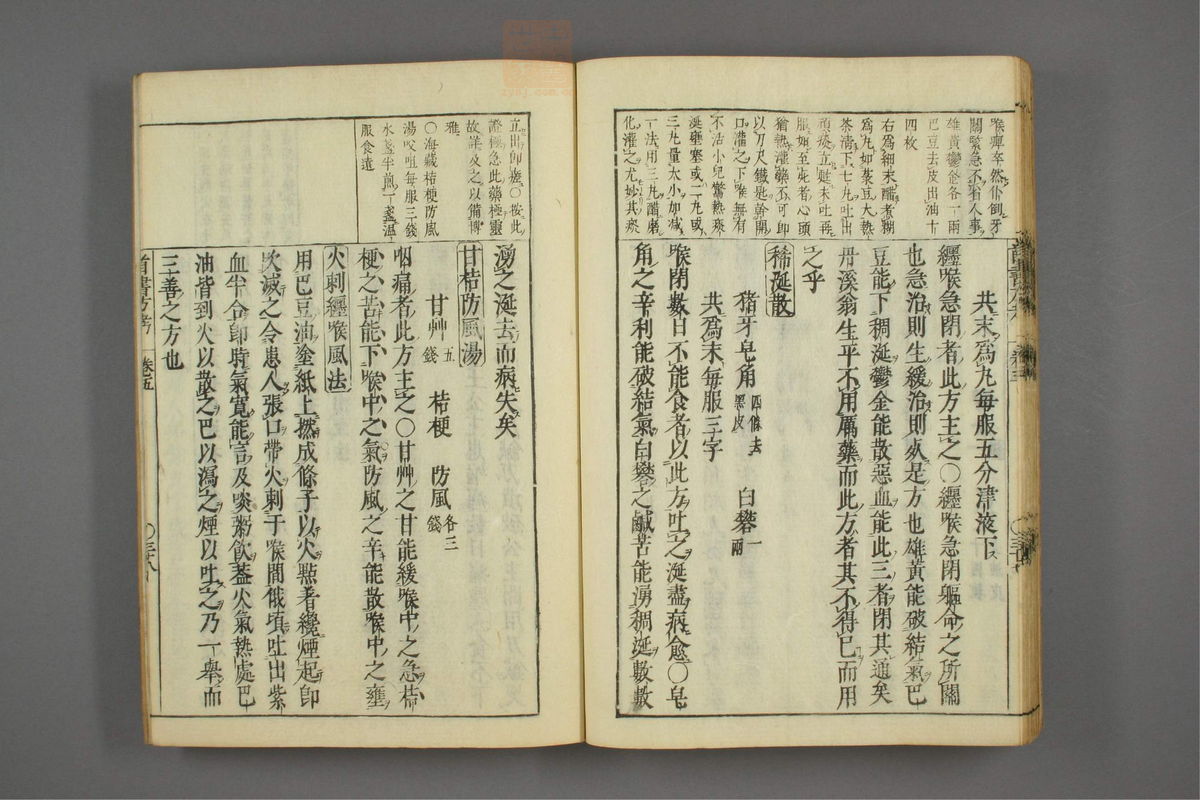 喉痺卒然仆倒牙
關緊急不省人事
雄黃鬱金各一兩
巴豆去皮出油十
四枚
右爲細末醋煮糊
爲丸如菉豆大熱
茶淸下七九吐出
頑痰立甦未吐再
服如至死者心頭
猶熱灌藥不可卽
以刀尺鐵匙斡開
口灌之下喉無有
不活小兒驚熱痰
涎壅塞或二丸或
三丸量大小加減
一法用三丸醋磨
化灌之尤妙其痰
共末爲丸每服五分津液下
纏喉急閉者此方主之○纏喉急閉軀命之所關
也急治則生緩治則死是方也雄黃能破結氣巴
豆能下稠涎鬱金能散惡血能此三者閉其通矣
丹溪翁生平不用厲藥而此方者其不得已而用
之乎
稀涎散
猪牙皂角四條去黑皮 白礬一兩
共爲末每服三字
喉閉數日不能食者以此方吐之涎盡病愈○皂
角之辛利能破結氣白礬之鹹苦能湧稠涎數數
立出卽瘥○按此
證極急此藥極靈
故詳及之以備博
雅
○海藏桔梗防風
湯㕮咀每服三錢
水盞半煎一盞溫
服食遠
湧之涎去而病失矣
甘桔防風湯
甘艸五錢 桔梗 防風各三錢
咽痛者此方主之○甘艸之甘能緩喉中之急桔
梗之苦能下喉中之氣防風之辛能散喉中之壅
火刺纏喉風法
用巴豆油塗紙上撚成條子以火點着纔煙起卽
吹滅之令患人張口帶火刺于喉間俄頃吐出紫
血半合卽時氣寬能言及啖粥飮葢火氣熱處巴
油皆到火以散之巴以瀉之煙以吐之乃一舉而
三善之方也
首書方考 卷五 ○三十八